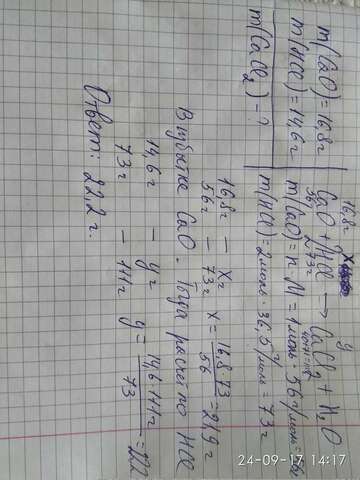 m(CaO)=16,8г
m(HCl)=14,6г
m(CaCl₂) - ?
16,8г x y
CaO + 2HCl → CaCl₂ + H₂O
56г 2·73г
m(CaO) = n·M = 1моль · 56г/моль =
m(HCl) = 2моль · 36,5г/моль = 73г
16,8г - xг
56г - 73г x = 16,8·73 / 56 = 21,9г
В избытке CaO. Тогда расчёт по HCl
14,6г - yг
73г - 111г y = 14,6·111 / 73 = 22
Ответ: 22,2г.
24-09-17 14:17